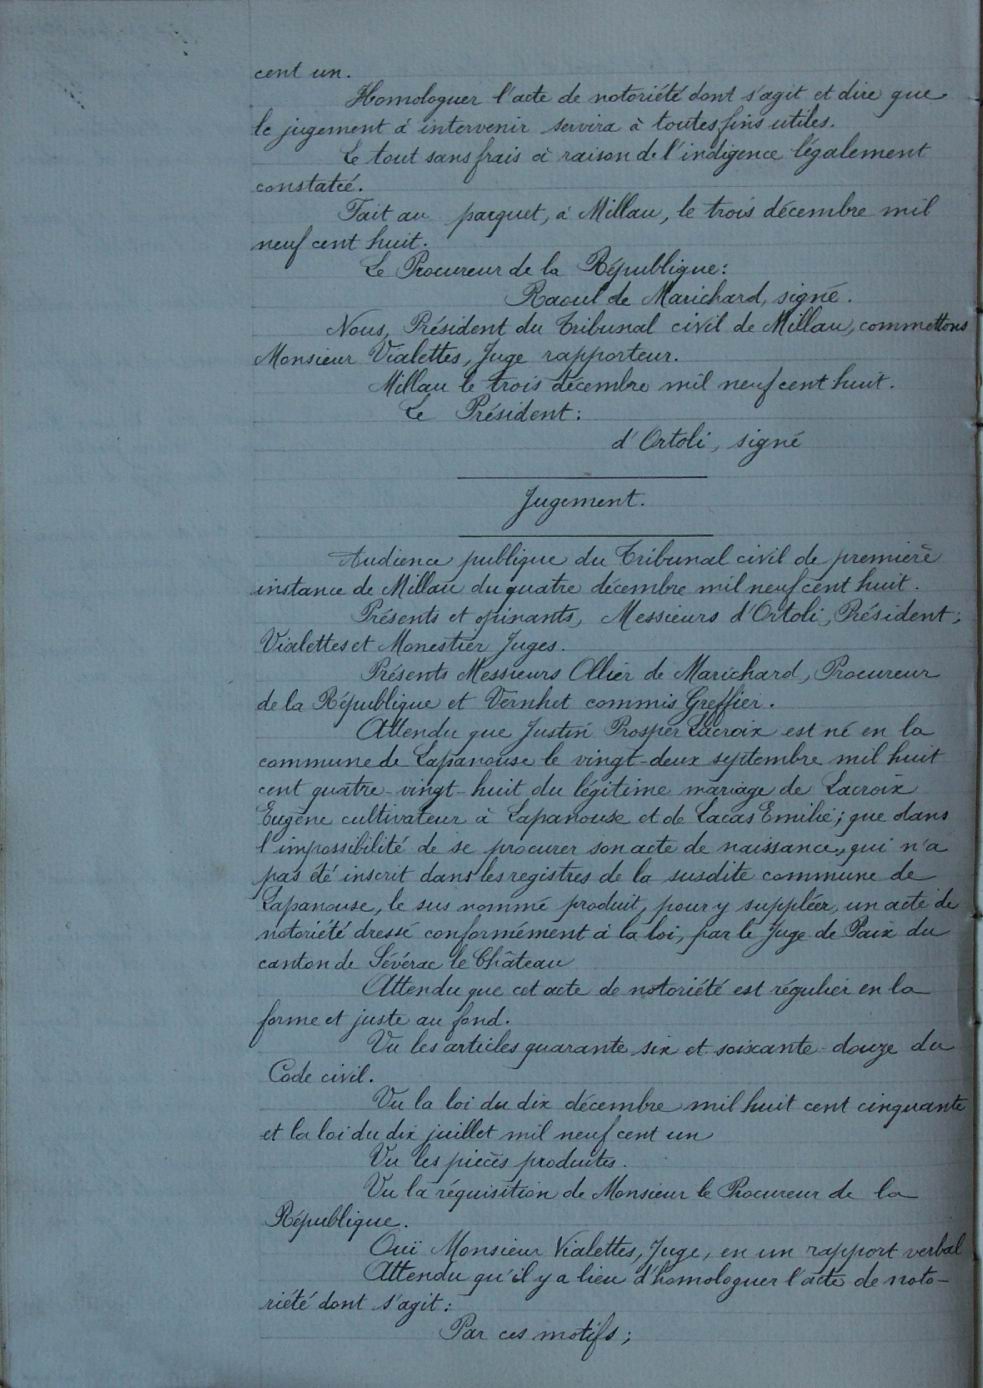 cent un.
Homologuer l'acte de notoriété dont s'agit et dire que
le jugement à intervenir servira à toutes fins utiles.
Le tout sans frais à raison de l'indigence légalement
constatée.
Fait au parquet, à Millau, le trois décembre mil
neuf cent huit.
Le Procureur de la République:
Raoul de Marichard, signé.
Nous, Président du Tribunal civil de Millau, commettons
Monsieur Vialettes, Juge rapporteur.
Millau le trois décembre mil neuf cent huit.
Le Président:
d'Ortoli, signé
Jugement.
Audience publique du Tribunal civil de première
instance de Millau du quatre décembre mil neuf cent huit.
Présents et opinants, Messieurs d'Ortoli, Président;
Vialettes et Monestier Juges.
Présents Messieurs Ollier de Marichard, Procureur
de la République et Vernhet commis Greffier.
Attendu que Justin Prosper Lacroix est né en la
commune de Lapanouse le vingt-deux septembre mil huit
cent quatre-vingt-huit du légitime mariage de Lacroix
Eugène cultivateur à Lapanouse et de Lacas Emilie; que dans
l'impossibilité de se procurer son acte de naissance, qui n'a
pas été inscrit dans les registres de la susdite commune de
Lapanouse, le sus nommé produit, pour y suppléer, un acte de
notoriété dressé conformément à la loi, par le Juge de Paix du
canton de Sévérac le Château
Attendu que cet acte de notoriété est régulier en la
forme et juste au fond.
Vu les articles quarante six et soixante douze du
Code civil.
Vu la loi du dix décembre mil huit cent cinquante
et la loi du dix juillet mil neuf cent un
Vu les pièces produites.
Vu la réquisition de Monsieur le Procureur de la
République.
Ouï Monsieur Vialettes, Juge, en un rapport verbal
Attendu qu'il y a lieu d'homologuer l'acte de noto-
riété dont s'agit:
Par ces motifs;